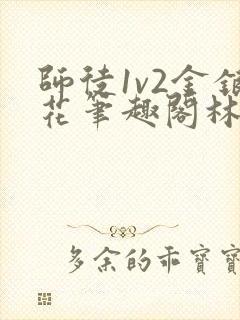 師徒1v2金銀
花筆趣閣林
多余的乖寶寶